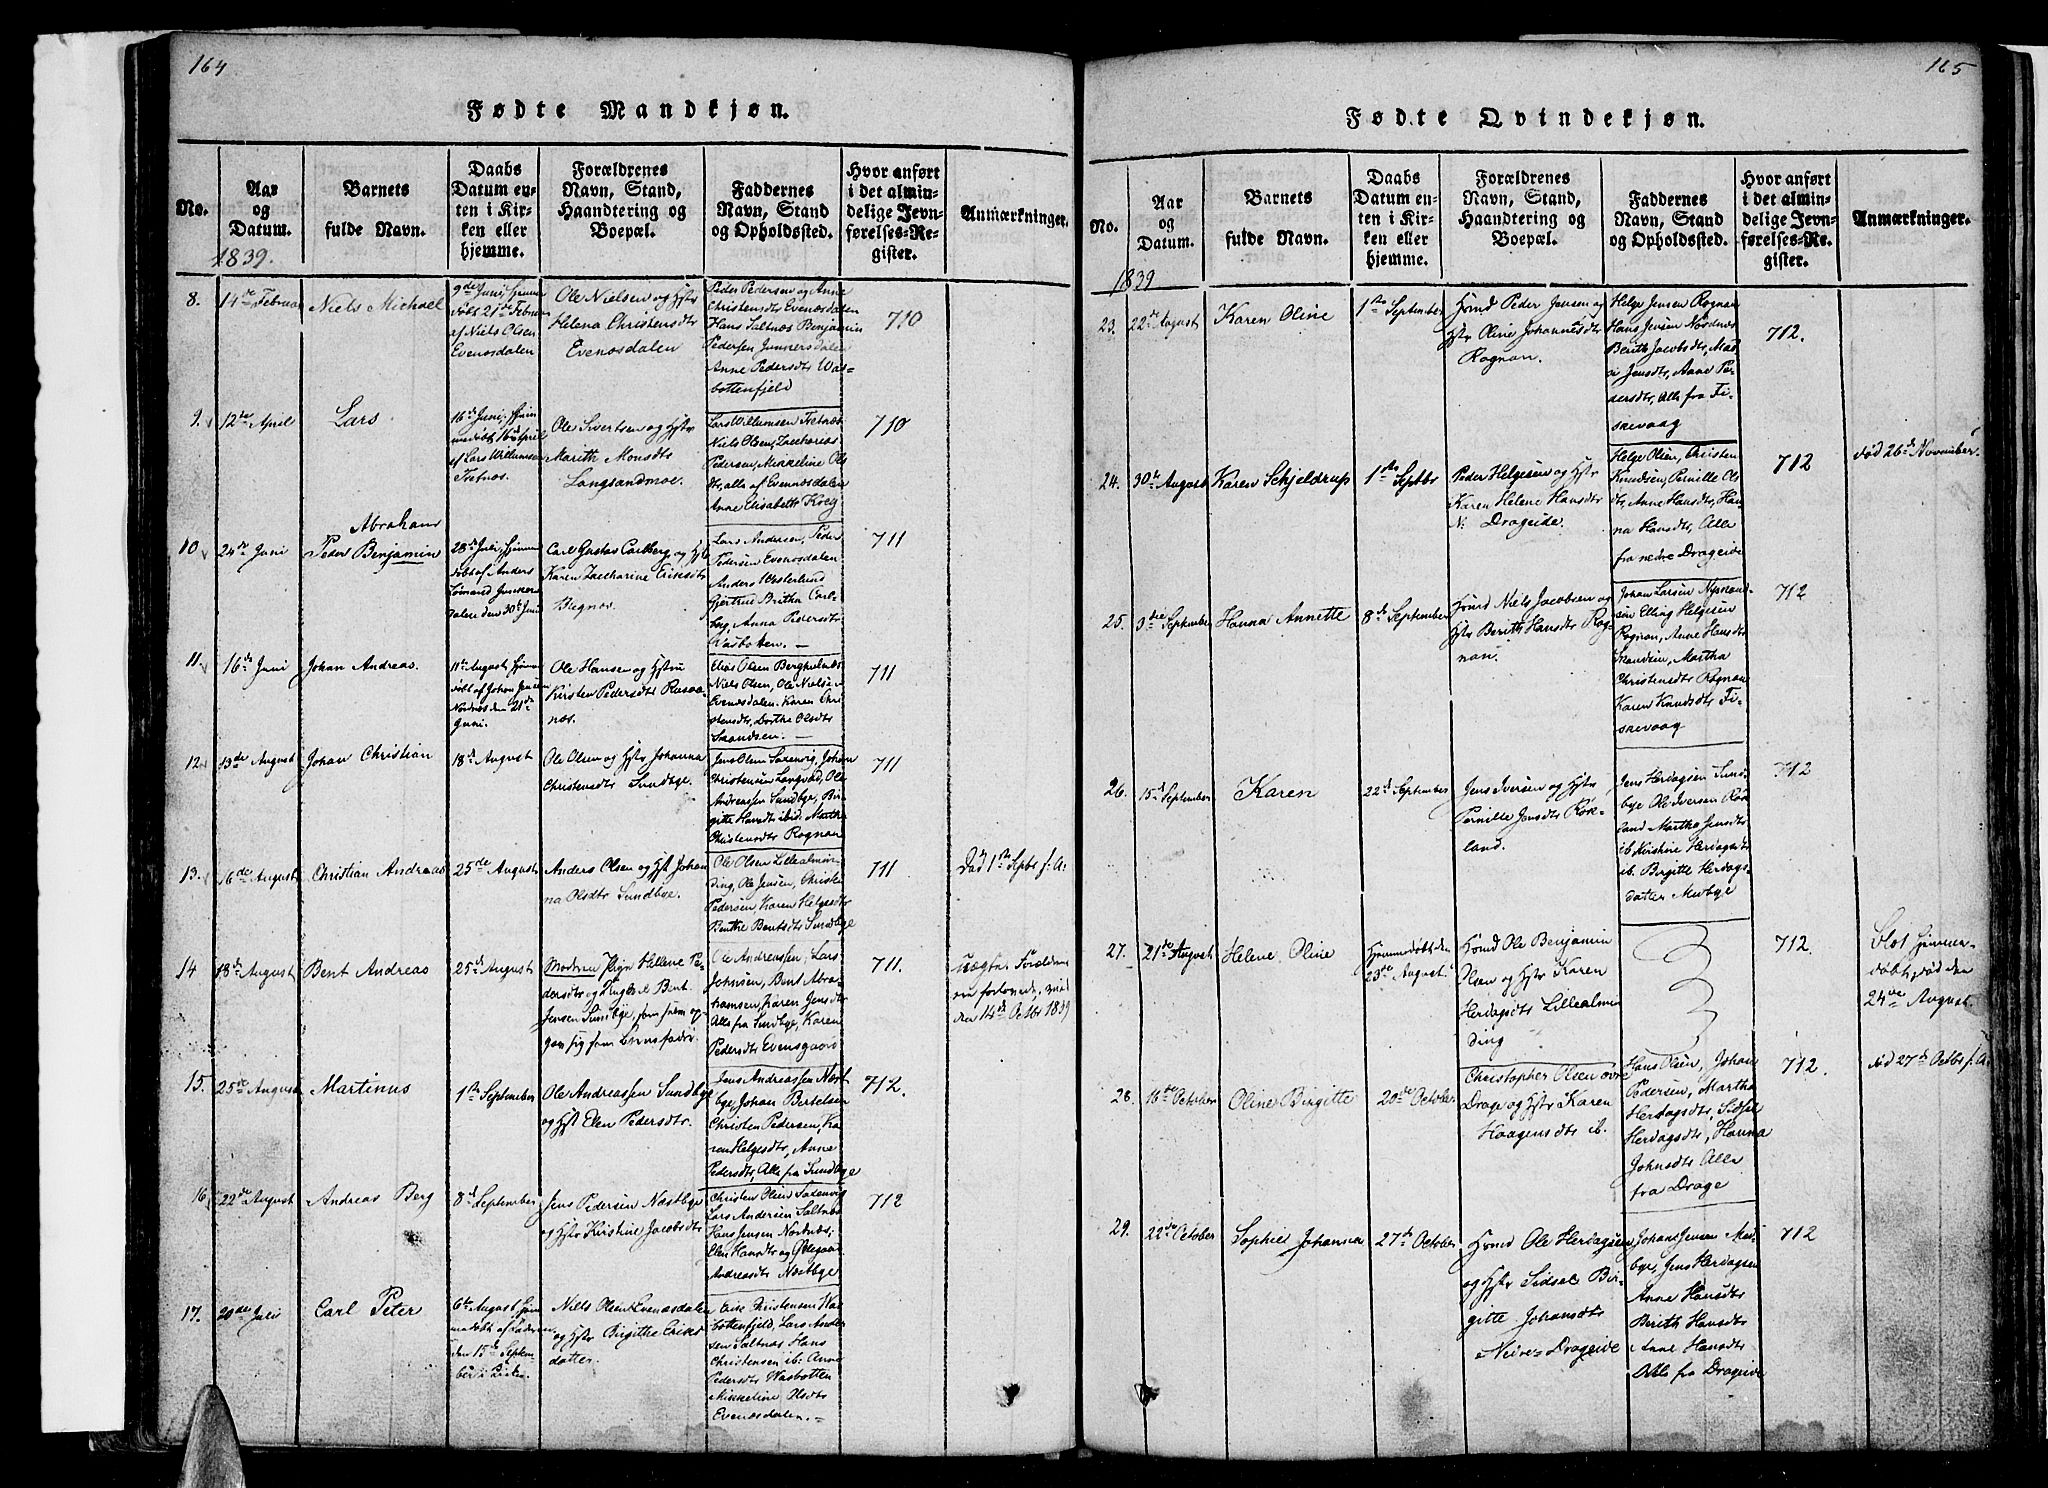 164
Fødte Mandkjøn.
No.
Aar
og
Datum.
Barnets
fulde Navn.
Daabs
Datum en-
ten i Kir-
ken eller
hjemme.
Forældrenes
Navn, Stand,
Haandtering og
Boepæl.
Faddernes
Navn, Stand
og Opholdssted.
Hvor anført
i det almin-
delige Jevn-
førelses-Re-
gister.
Anmærkninger.
1839.
8.
14de Februar
Niels Michael
9de Juni, hjemme
døbt 21de Februar
af Niels Olsen
Evenosdalen
Ole Nielsen og Hstr
Helena Christensdtr
Evenosdalen
Peder Pedersen og Anne
Christensdtr Evenosdalen
Hans Saltnæs Benjamin
Pedersen Junkersdalen
Anne Pedersdtr Was-
bottenfjeld
710
9.
12te April
Lars
16de Juni, hjem
medøbt 16de April
af Lars Willumsen
Tretnæs
Ole Sivertsen og Hstr
Marith Monsdtr
Langsandmoe.
Lars Willumsen Tretnæs
Niels Olsen, Zacharias
Pedersen, Mikkeline Ols
dtr, alle af Evenosdalen
Anne Elisabeth Krey
710
10
24de Juni
Abraham
Peder Benjamin
28de Juli, hjemme
døbt af Anders
Junkers
dalen den 30te Juni
Carl Gustav Carlberg og Hstr
Karen Zaccharine Eriksdtr
Lars Andersen, Peder
Pedersen Evenosdalen
Anders Westerlund
Gjertrue Britha Carl-
berg, Anna Pedersdtr
Vasbotten. —
711
11.
16de Juni
Johan Andreas.
11te August, hjemme
døbt af Johan Jensen
Nordnæs den 21de
Juni.
Ole Hansen og Hstru
Kirsten Pedersdtr Rusaa-
næs.
Elias Olsen Berghulnæs
Niels Olsen, Ole Nielsen
Evenosdalen. Karen Chri
stensdtr, Dorthe Olsdtr
711
12.
13de August
Johan Christian
18de August
Ole Olsen og Hstr Johanna
Christensdtr Sundbye.
Jens Olsen Saxenvig, Johan
Christensen Langvad, Ole
Andreassen Sundbye, Bir-
gitte Hansdtr ibid. Martha
Christensdtr Rognan
711
13.
16de August
Christian Andreas
25de August
Anders Olsen og Hstr Johan
na Olsdtr Sundbye.
Ole Olsen Lillealmin-
ding, Ole Jensen, Christen
Pedersen, Karen Helgesdtr
Benthe Bentsdtr Sundbye
711
Død 1ste Sptbr s: A:
14
18de August
Bent Andreas
25de August
Moderen Pign Hellene Pe-
dersdtr og Ungkarl Bent
Jensen Sundbye, som frem op-
gav sig som Barnefader.
Ole Andreassen, Lars
Johnsen, Bent Abra-
hamsen, Karen Jensdtr
Alle fra Sundbye, Karen
Pedersdtr Evensgaard
711.
Uægte. Forældrene
ere forlovede
den 14de Octbr 1839
15.
25de August
Martinus
1ste September
Ole Andreassen Sundbye
og Hstr Elen Pedersdtr.
Jens Andreassen Næst
bye, Johan Bertelsen
Christen Pedersen, Ka
ren Helgesdtr, Anne
Pedersdtr, Alle fra Sundbye
712.
16
22de August
Andreas Berg
8de September
Jens Pedersen Næstbye
og Hstr Kristine Jacobsdtr
Christen Olsen Saxenvig
Lars Andersen Saltnæs
Hans Jensen Nordnæs;
Elen Hansdtr og Ødegaard
Andreasdtr Næstbye
712
17.
20de Juli
Carl Peter
6te August hjem
medøbt af Faderen
den 15de Septem-
ber i Kirken.
Niels Olsen Evenosdalen
og Hstr Birgithe Eriks
datter.
Christensen Was
bottenfjeld, Lars Ander
sen Saltnæs Hans
Christensen ib: Anne
Pedersdtr Wasbotten
Mikkeline Olsdtr
Evenosdalen. —
165
Fødte Qvindekjøn.
No.
Aar
og
Datum.
Barnets
fulde Navn.
Daabs
Datum en-
ten i Kir-
ken eller
hjemme.
Forældrenes
Navn, Stand,
Haandtering og
Boepæl.
Faddernes
Navn, Stand
og Opholdssted.
Hvor anført
i det almin-
delige Jevn-
førelses-Re-
gister.
Anmærkninger.
1839
23.
22de August
Karen Oline
1ste September
Hsmd Peder Jensen og
Hstr Oline Johannesdtr
Rognan.
Helge Jensen Rognan
Hans Jensen Nordnæs
Berith Jacobsdtr, Mar
Jensdtr, Anne Pe-
dersdtr, Alle fra Fi-
skevaag
712.
24.
30te August
Karen Schjeldrup
1ste Septbr
Peder Helgesen og Hstr
Karen Helene Hansdtr
N: Drageide.
Helge Olsen, Christen
Knudsen, Pernille Ols
dtr, Anne Hansdtr, Han
na Hansdtr, Alle
fra nedre Drageide
712
død 26de November.
25.
3die September
Hanna Annette
8de September
Hsmd Niels Jacobsen og
Hstr Berith Hansdtr Rog-
nan.
Johan Larsen
Elling Helgesen
Rognan, Anne Hansdtr
Martha
Christensdtr Rognan
Karen Knudsdtr Fi-
skevaag
712
26.
15de September
Karen
22de September
Jens Iversen og Hstr
Pernille Jonsdtr Røk-
land.
Jens Herdagsen Sund
bye Ole Iversen Røk
land Martha Jensdtr
ib. Kirstine Herdagsdtr
ib. Birgitte Herdags-
datter Medbye
712
27.
21de August
Helene Oline
Hjemmedøbt den
23de August.
Hsmd Ole Benjamin
Olsen og Hstr Karen
Herdagsdtr Lillealmin
ding
712.
blot hjemme-
døbt, død den
24de August
28.
16de October
Oline Birgitte
20de October
Christopher Olsen øvre
Drage og Hstr Karen
Haagensdtr ib.
Hans Olsen, Johan
Pedersen, Martha
Herdagsdtr, Sidsel
Herdagsdtr, Hanna
Johnsdtr Alle
fra Drage
712.
død 27de Octbr s. A:
29.
22de October
Sophie Johanna
27de October
Hsmd Ole Herdagsen
og Hstr Sidsel Bir-
gitte Johansdtr
Nedre-Drageide
Johan Jensen Med-
bye, Jens Herdagsen
Anne Hansdtr
Berith Hansdtr
Anne Hansdtr
Alle fra Drageide
712